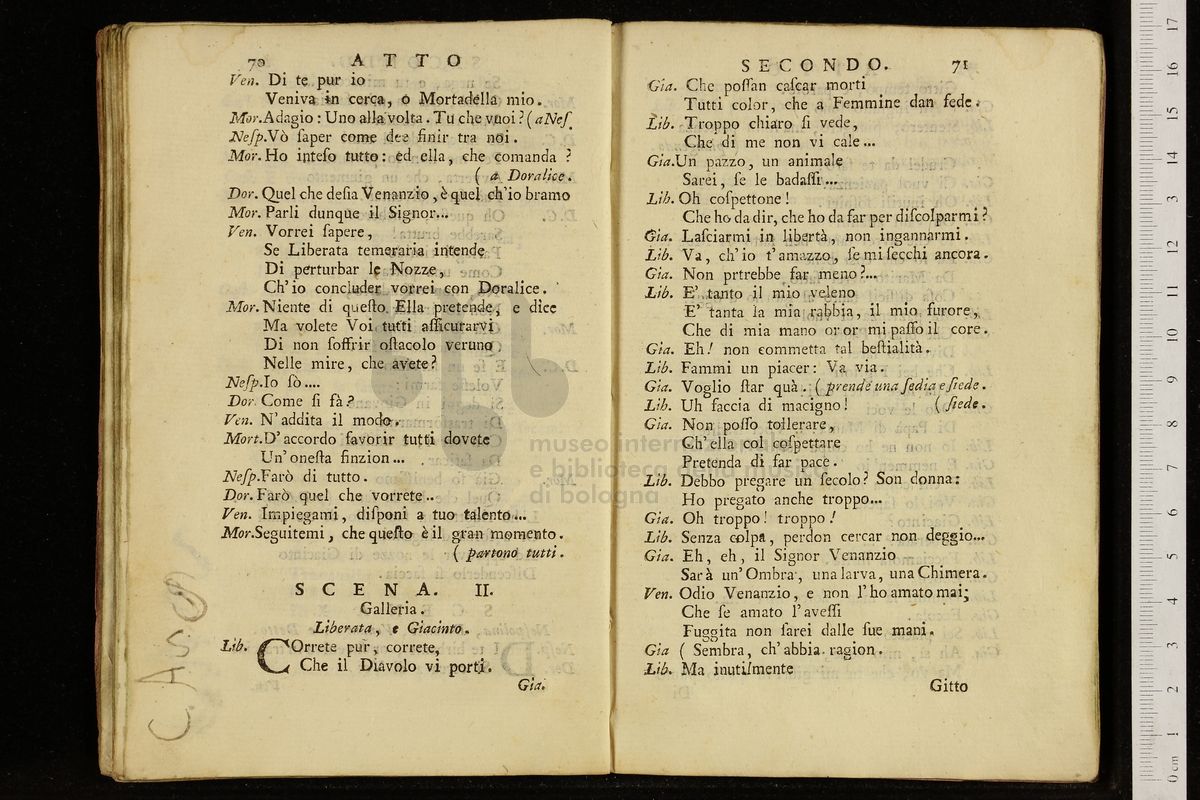 70 ATTO
Ven. Di te pur io
Veniva in cerca, o Mortadella mio.
Mor. Adagio: Uno alla volta. Tu che vuoi? (a Neſ.
Neſp. Vò ſaper come dee finir tra noi.
Mor. Ho inteſo tutto: ed ella, che comanda?
(a Doralice.
Dor. Quel che deſia Venanzio, è quel ch'io bramo
Mor. Parli dunque il Signor...
Ven. Vorrei ſapere,
Se Liberata temeraria intende
Di perturbar le Nozze,
Ch'io concluder vorrei con Doralice.
Mor. Niente di queſto. Ella pretende, e dice
Ma volete Voi tutti aſſicurarvi
Di non ſoffrir oſtacolo veruno
Nelle mire, che avete?
Neſp. Io ſò....
Dor. Come ſi fà?
Ven. N'addita il modo.
Mort. D'accordo favorir tutti dovete
Un'oneſta finzion...
Neſp. Farò di tutto.
Dor. Farò quel che vorrete..
Ven. Impiegami, diſponi a tuo talento...
Mor. Seguitemi, che queſto è il gran momento.
(partono tutti.
SCENA. II.
Galleria.
Liberata, e Giacinto.
Lib. COrrete pur, correte,
Che il Diavolo vi porti.
Gia.
C. A S. (9)
SECONDO. 71
Gia. Che poſſan caſcar morti
Tutti color, che a Femmine dan fede.
Lib. Troppo chiaro ſi vede,
Che di me non vi cale...
Gia. Un pazzo, un animale
Sarei, ſe le badaſſi...
Lib. Oh coſpettone!
Che ho da dir, che ho da far per diſcolparmi?
Gia. Laſciarmi in libertà, non ingannarmi.
Lib. Va, ch'io t'amazzo, ſe mi ſecchi ancora.
Gia. Non prtrebbe far meno?...
Lib. E' tanto il mio veleno
E' tanta la mia rabbia, il mio furore,
Che di mia mano or or mi paſſo il core.
Gia. Eh! non commetta tal beſtialità.
Lib. Fammi un piacer: Va via.
Gia. Voglio ſtar quà. (prende una ſedia e ſiede.
Lib. Uh faccia di macigno! (ſiede.
Gia. Non poſſo tollerare,
Ch'ella col coſpettare
Pretenda di far pace.
Lib. Debbo pregare un ſecolo? Son donna:
Ho pregato anche troppo...
Gia. Oh troppo! troppo!
Lib. Senza colpa, perdon cercar non deggio...
Gia. Eh, eh, il Signor Venanzio
Sarà un'Ombra, una larva, una Chimera.
Ven. Odio Venanzio, e non l'ho amato mai;
Che ſe amato l'aveſſi
Fuggita non ſarei dalle ſue mani.
Gia (Sembra, ch'abbia ragion.
Lib. Ma inutilmente
Gitto
museo internazionale
e biblioteca della musica
di bologna
0 cm 1 2 3 4 5 6 7 8 9 10 11 12 13 14 15 16 17